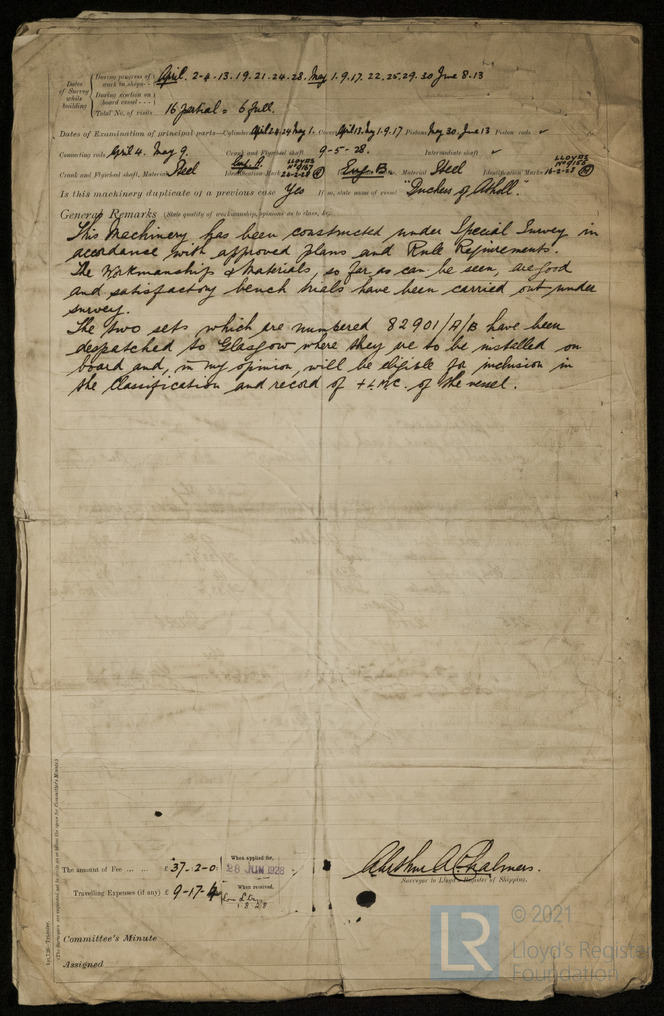 Dates of Survey while building
During progress of work in shops - - April. 2-4-13.19.21.24.28. May 1.9.17.22.25.29.30 June 8.13
During erection on board vessel - - -
Total No. of visits 16 partial = 6 full.
Dates of Examination of principal parts—Cylinders April 24 May 1. Covers April 13. May 1.9.17 Pistons May 30, June 13 Piston rods ✓
Connecting rods April 4. May 9. Crank and Flywheel shaft 9-5-28. Intermediate shaft ✓
Crank and Flywheel shaft, Material Steel Identification Mark Eng. A. LLOYDS 24-2-28 Eng. B. Material Steel Identification Marks LLOYDS 16-2-28
Is this machinery duplicate of a previous case Yes If so, state name of vessel "Duchess of Atholl."
General Remarks (State quality of workmanship, opinions as to class, &c.)
This Machinery has been constructed under Special Survey in
accordance with approved plans and Rule Requirements.
The Workmanship & Materials, so far as can be seen, are good
and satisfactory bench trials have been carried out under
survey.
The two sets which are numbered 82901/A/B have been
despatched to Glasgow where they are to be installed on
board and, in my opinion, will be eligible for inclusion in
the Classification and record of + L.M.C. of the vessel.
The amount of Fee ... ... £ 37.2-0: When applied for, 28 JUN 1928
Travelling Expenses (if any) £ 9-17-4 When received, 1.8.28
Arthur A. Chalmers.
Surveyor to Lloyd's Register of Shipping.
Committee's Minute
Assigned
LR
© 2021
Lloyd's Register
Foundation